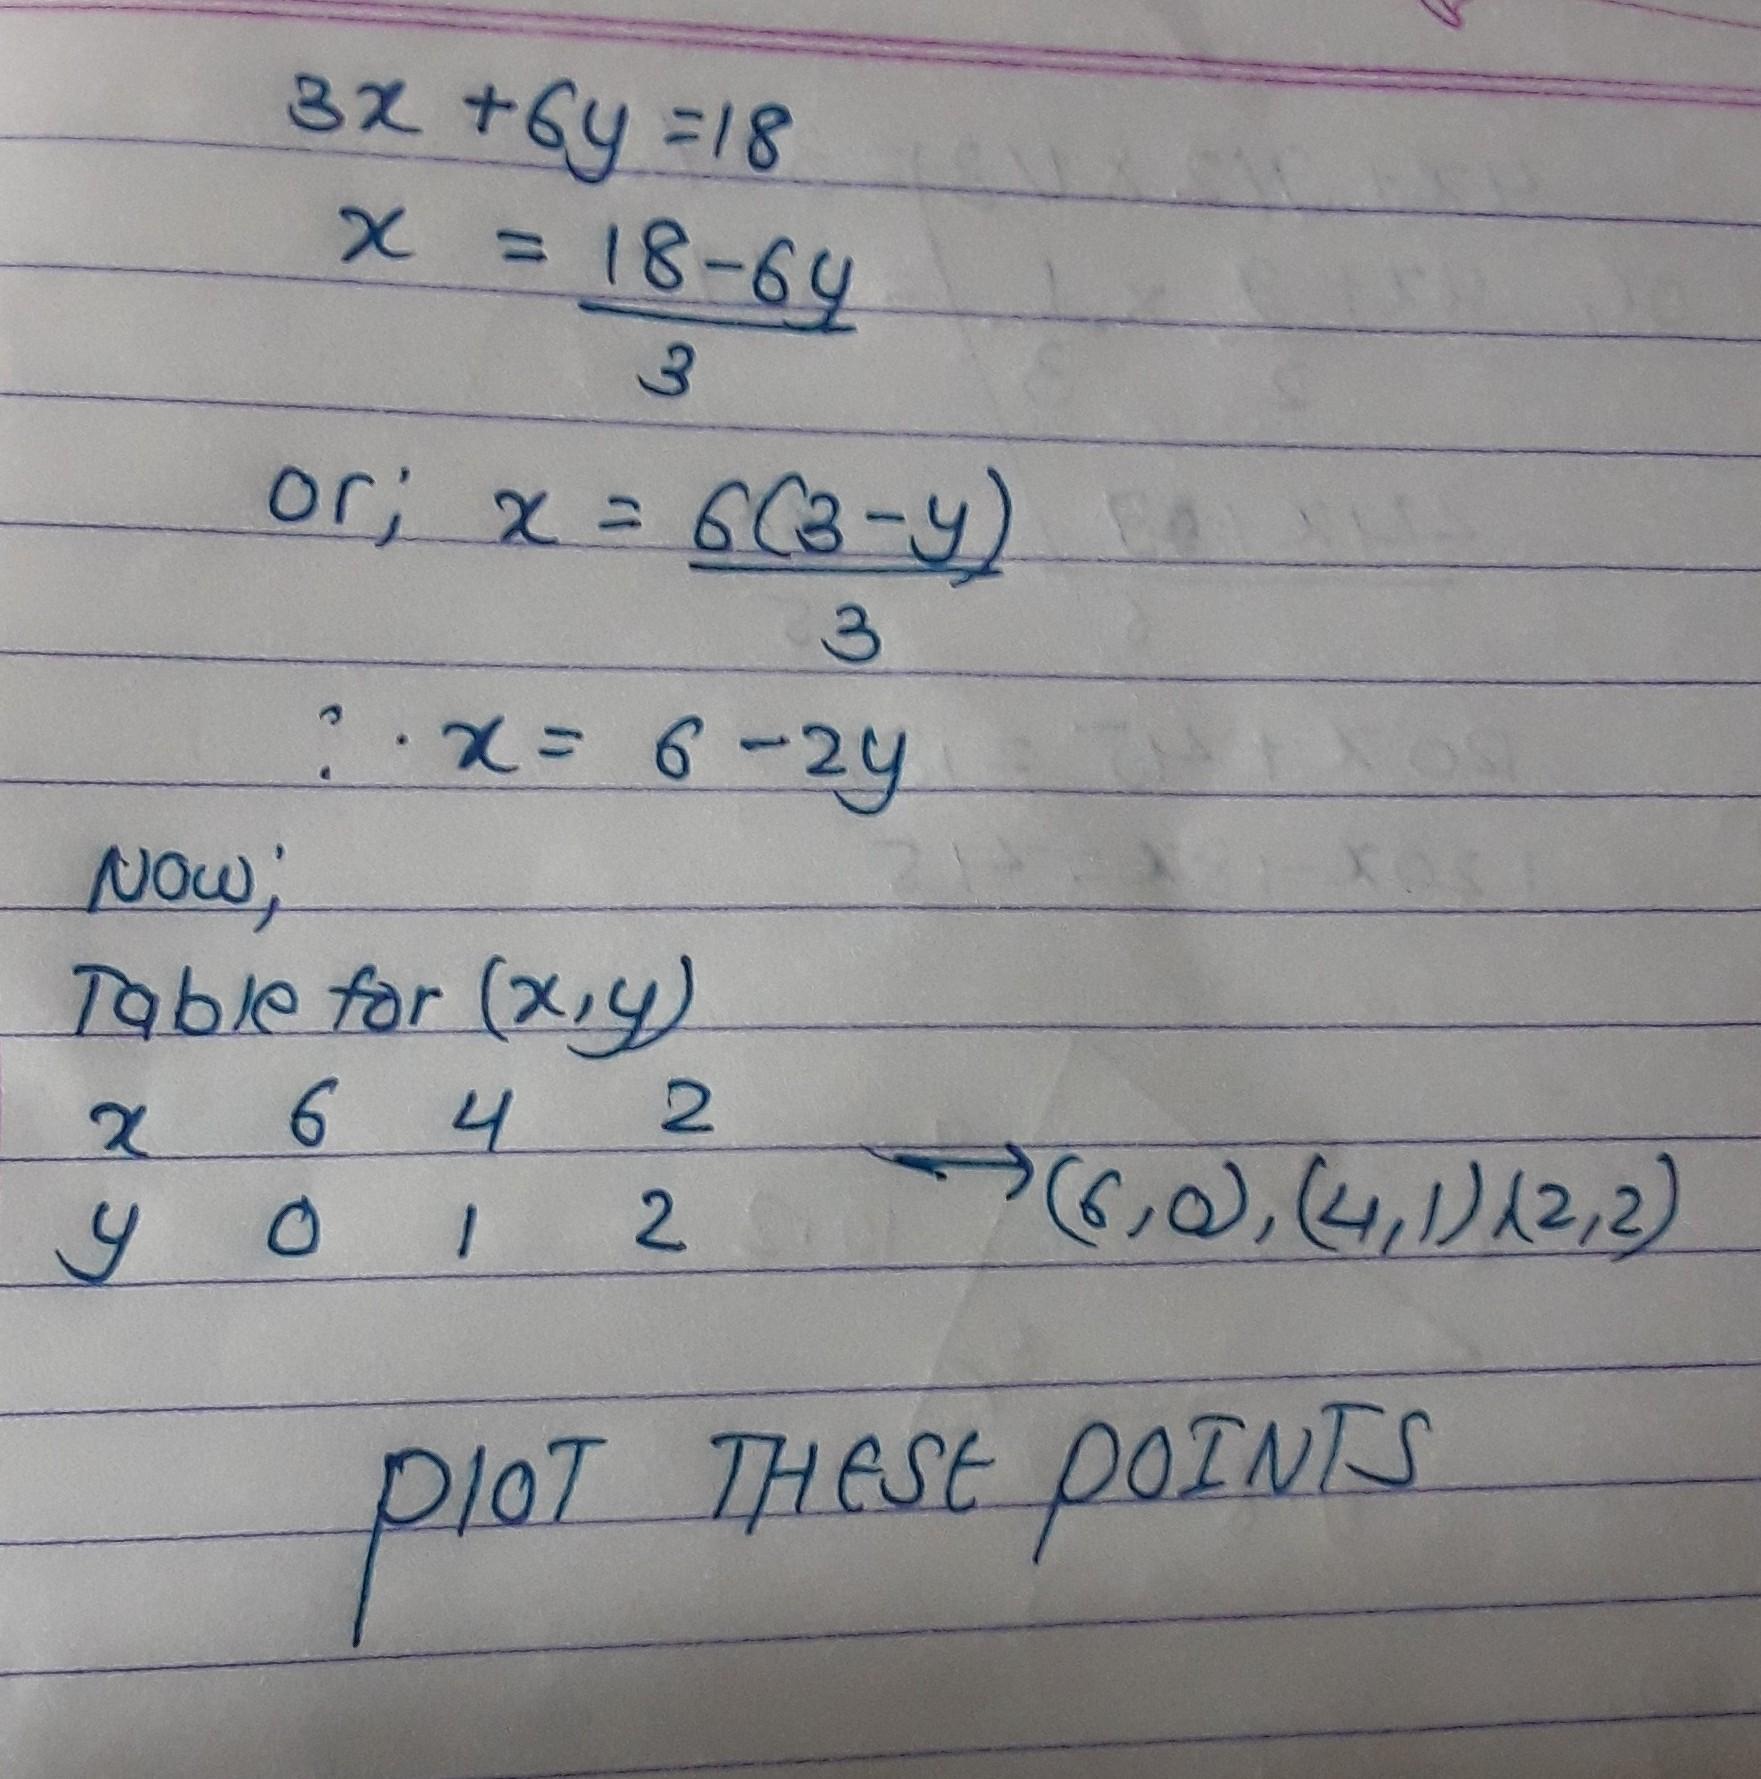 3x + 6y = 18
x = 18 - 6y
3
or; x = 6(3 - y)
3
∴ x = 6 - 2y
Now;
Table for (x,y)
x 6 4 2
y 0 1 2 → (6,0), (4,1), (2,2)
PlOT THESE POINTS